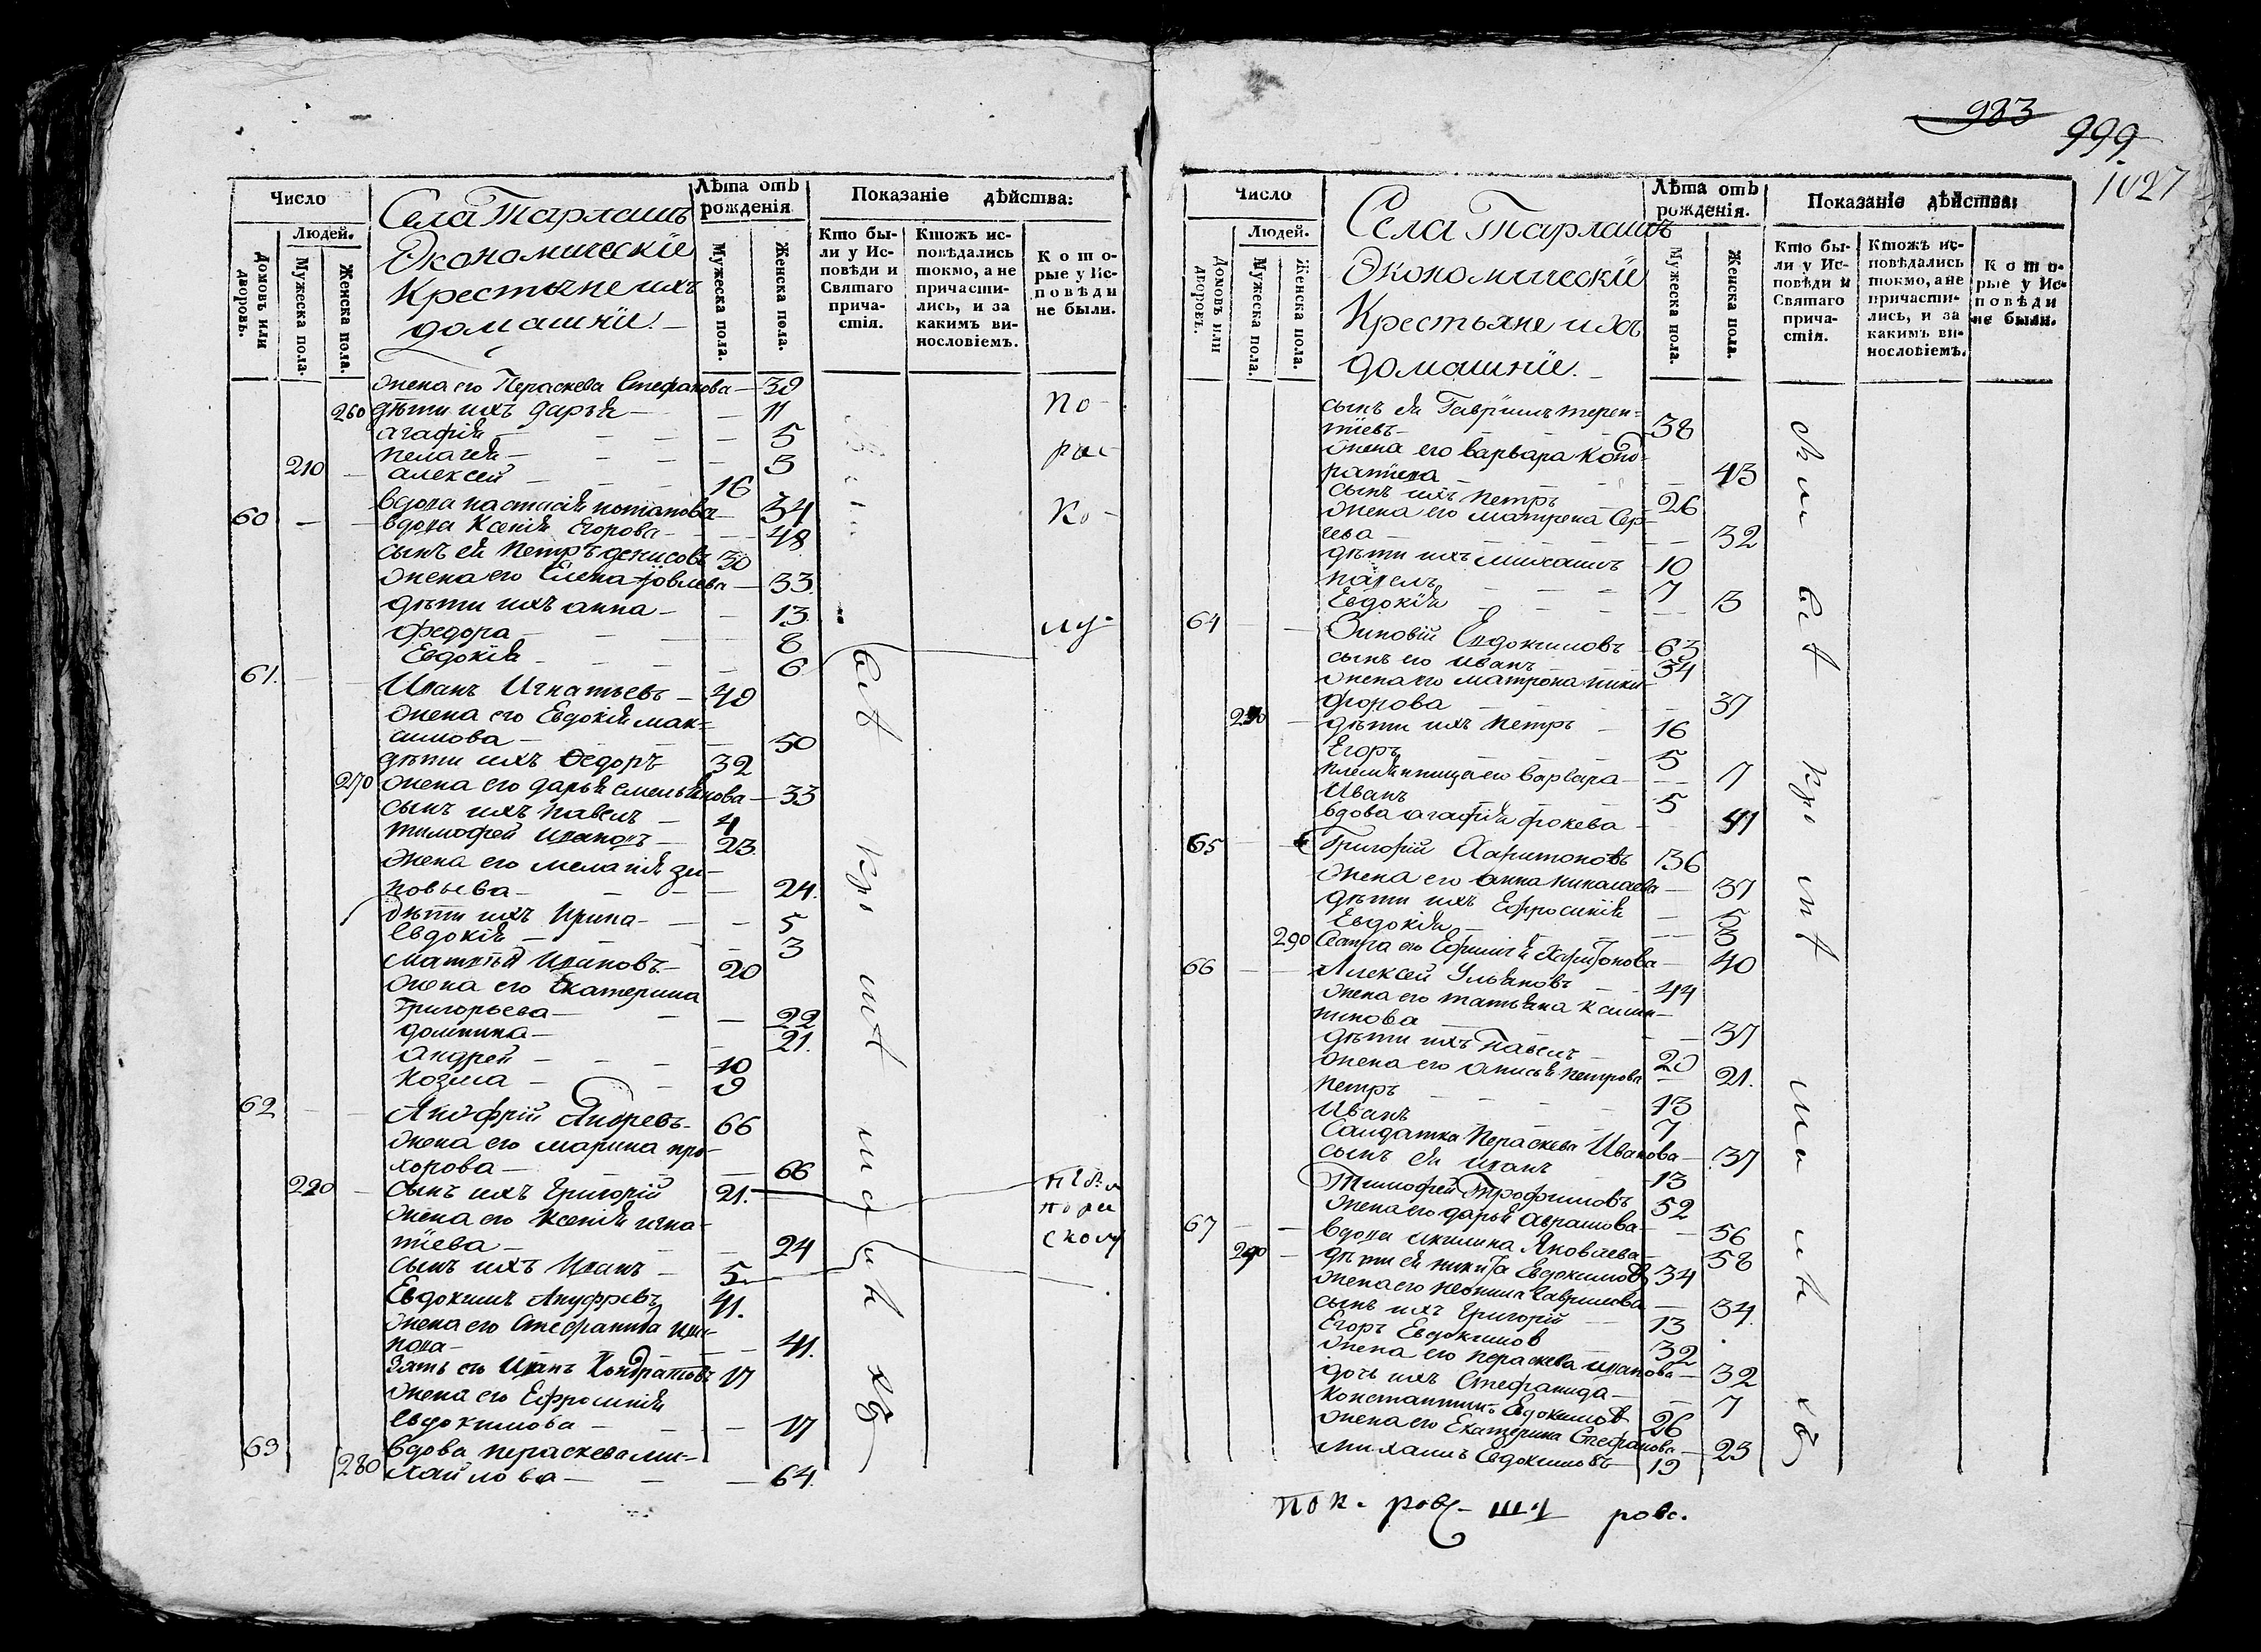 983
999
1027
Число
Людей.
Домовъ или дворовъ.
Мужеска пола.
Женска пола.
Села Тарлашъ
Экономическіе
Крестьяне ихъ
домашніе.
Лѣта отъ рожденія
Мужеска пола.
Женска пола.
Показаніе дѣйства:
Кто были у Исповѣди и Святаго причастія.
Ктожъ исповѣдались токмо, а не причастились, и за какимъ винословіемъ.
Которые у Исповѣди не были.
жена его Пераскева Стефанова — 39
260 дѣти ихъ дарья — 11
агафія — 5
пелагея — 3
210 алексей — 16
вдова настасія потапова — 34
60 вдова Ксенія Егорова — 48
сынъ ея петръ денисовъ 30
жена его Елена яковлева — 33.
дѣти ихъ анна — 13
федора — 8
Евдокія — 6
61. Иванъ Игнатьевъ — 49
жена его Евдокія мак-
симова — 50
дѣти ихъ Ѳедоръ 32
270 жена его дарья емельянова — 33
сынъ ихъ павелъ — 4
тимофей Ивановъ — 23.
жена его меланія зи-
новьева — 24.
дѣти ихъ Ирина — 5
Евдокія — 3
матвѣй Ивановъ — 20
жена его Екатерина
Григорьева — 22
домника — 21.
андрей — 10
козма — 9
62 Анофрій Андревъ — 66
жена его марина про-
хорова — 66
220 сынъ ихъ григорій 21.
жена его Ксенія игна-
тіева — 24
сынъ ихъ Иванъ — 5
Евдокимъ Ануфревъ 41.
жена его Стефанида ива-
нова — 41.
зять его Иванъ Кондратовъ 17
жена его Ефросинія
Евдокимова — 17
63 вдова пераскева ми-
280 хайлова — 64.
Число
Людей.
Домовъ или дворовъ.
Мужеска пола.
Женска пола.
Села Тарлашъ
Экономическіе
Крестьяне ихъ
домашніе.
Лѣта отъ рожденія.
Мужеска пола.
Женска пола.
Показаніе дѣйства:
Кто были у Исповѣди и Святаго причастія.
Ктожъ исповѣдались токмо, а не причастились, и за какимъ винословіемъ.
Которые у Исповѣди не были.
сынъ ея Гавріилъ терен-
тіевъ — 38
жена его варвара конд-
ратіева — 43
сынъ ихъ петръ 26
жена его матрена Сер-
геева — 32
дѣти ихъ михаилъ 10
павелъ 7
Евдокія — 3
64 Зиновій Евдокимовъ 63
сынъ его иванъ 34
жена его матрона ники-
форова — 37
дѣти ихъ петръ — 16
Егоръ 5
племянница его варвара — 7
Иванъ 5
вдова агафія фокева — 41
65 Григорій Харитоновъ 36
жена его анна николаева — 37
дѣти ихъ Ефросинія — 5
Евдокія — 3
290 Сестра его Ефимія Харитонова — 40
66 Алексей Ульяновъ — 44
жена его татьяна
— 37
дѣти ихъ Павелъ 20
жена его анисья петрова 21.
петръ 13
Иванъ 7
Салдатка пераскева Иванова — 37
сынъ ея иванъ 13
Тимофей Трофимовъ 52
жена его дарья аврамова — 56
67 вдова акилина Яковлева — 58
дѣти ея никита Евдокимовъ 34
жена его неонила Гаврилова — 34.
сынъ ихъ григорій — 13
Егоръ Евдокимов 32
жена его пераскева иванова — 32
дочь ихъ Стефанида — 7
константинъ Евдокимов 26
жена его Екатерина Стефанова — 23
михаилъ Евдокимовъ 19